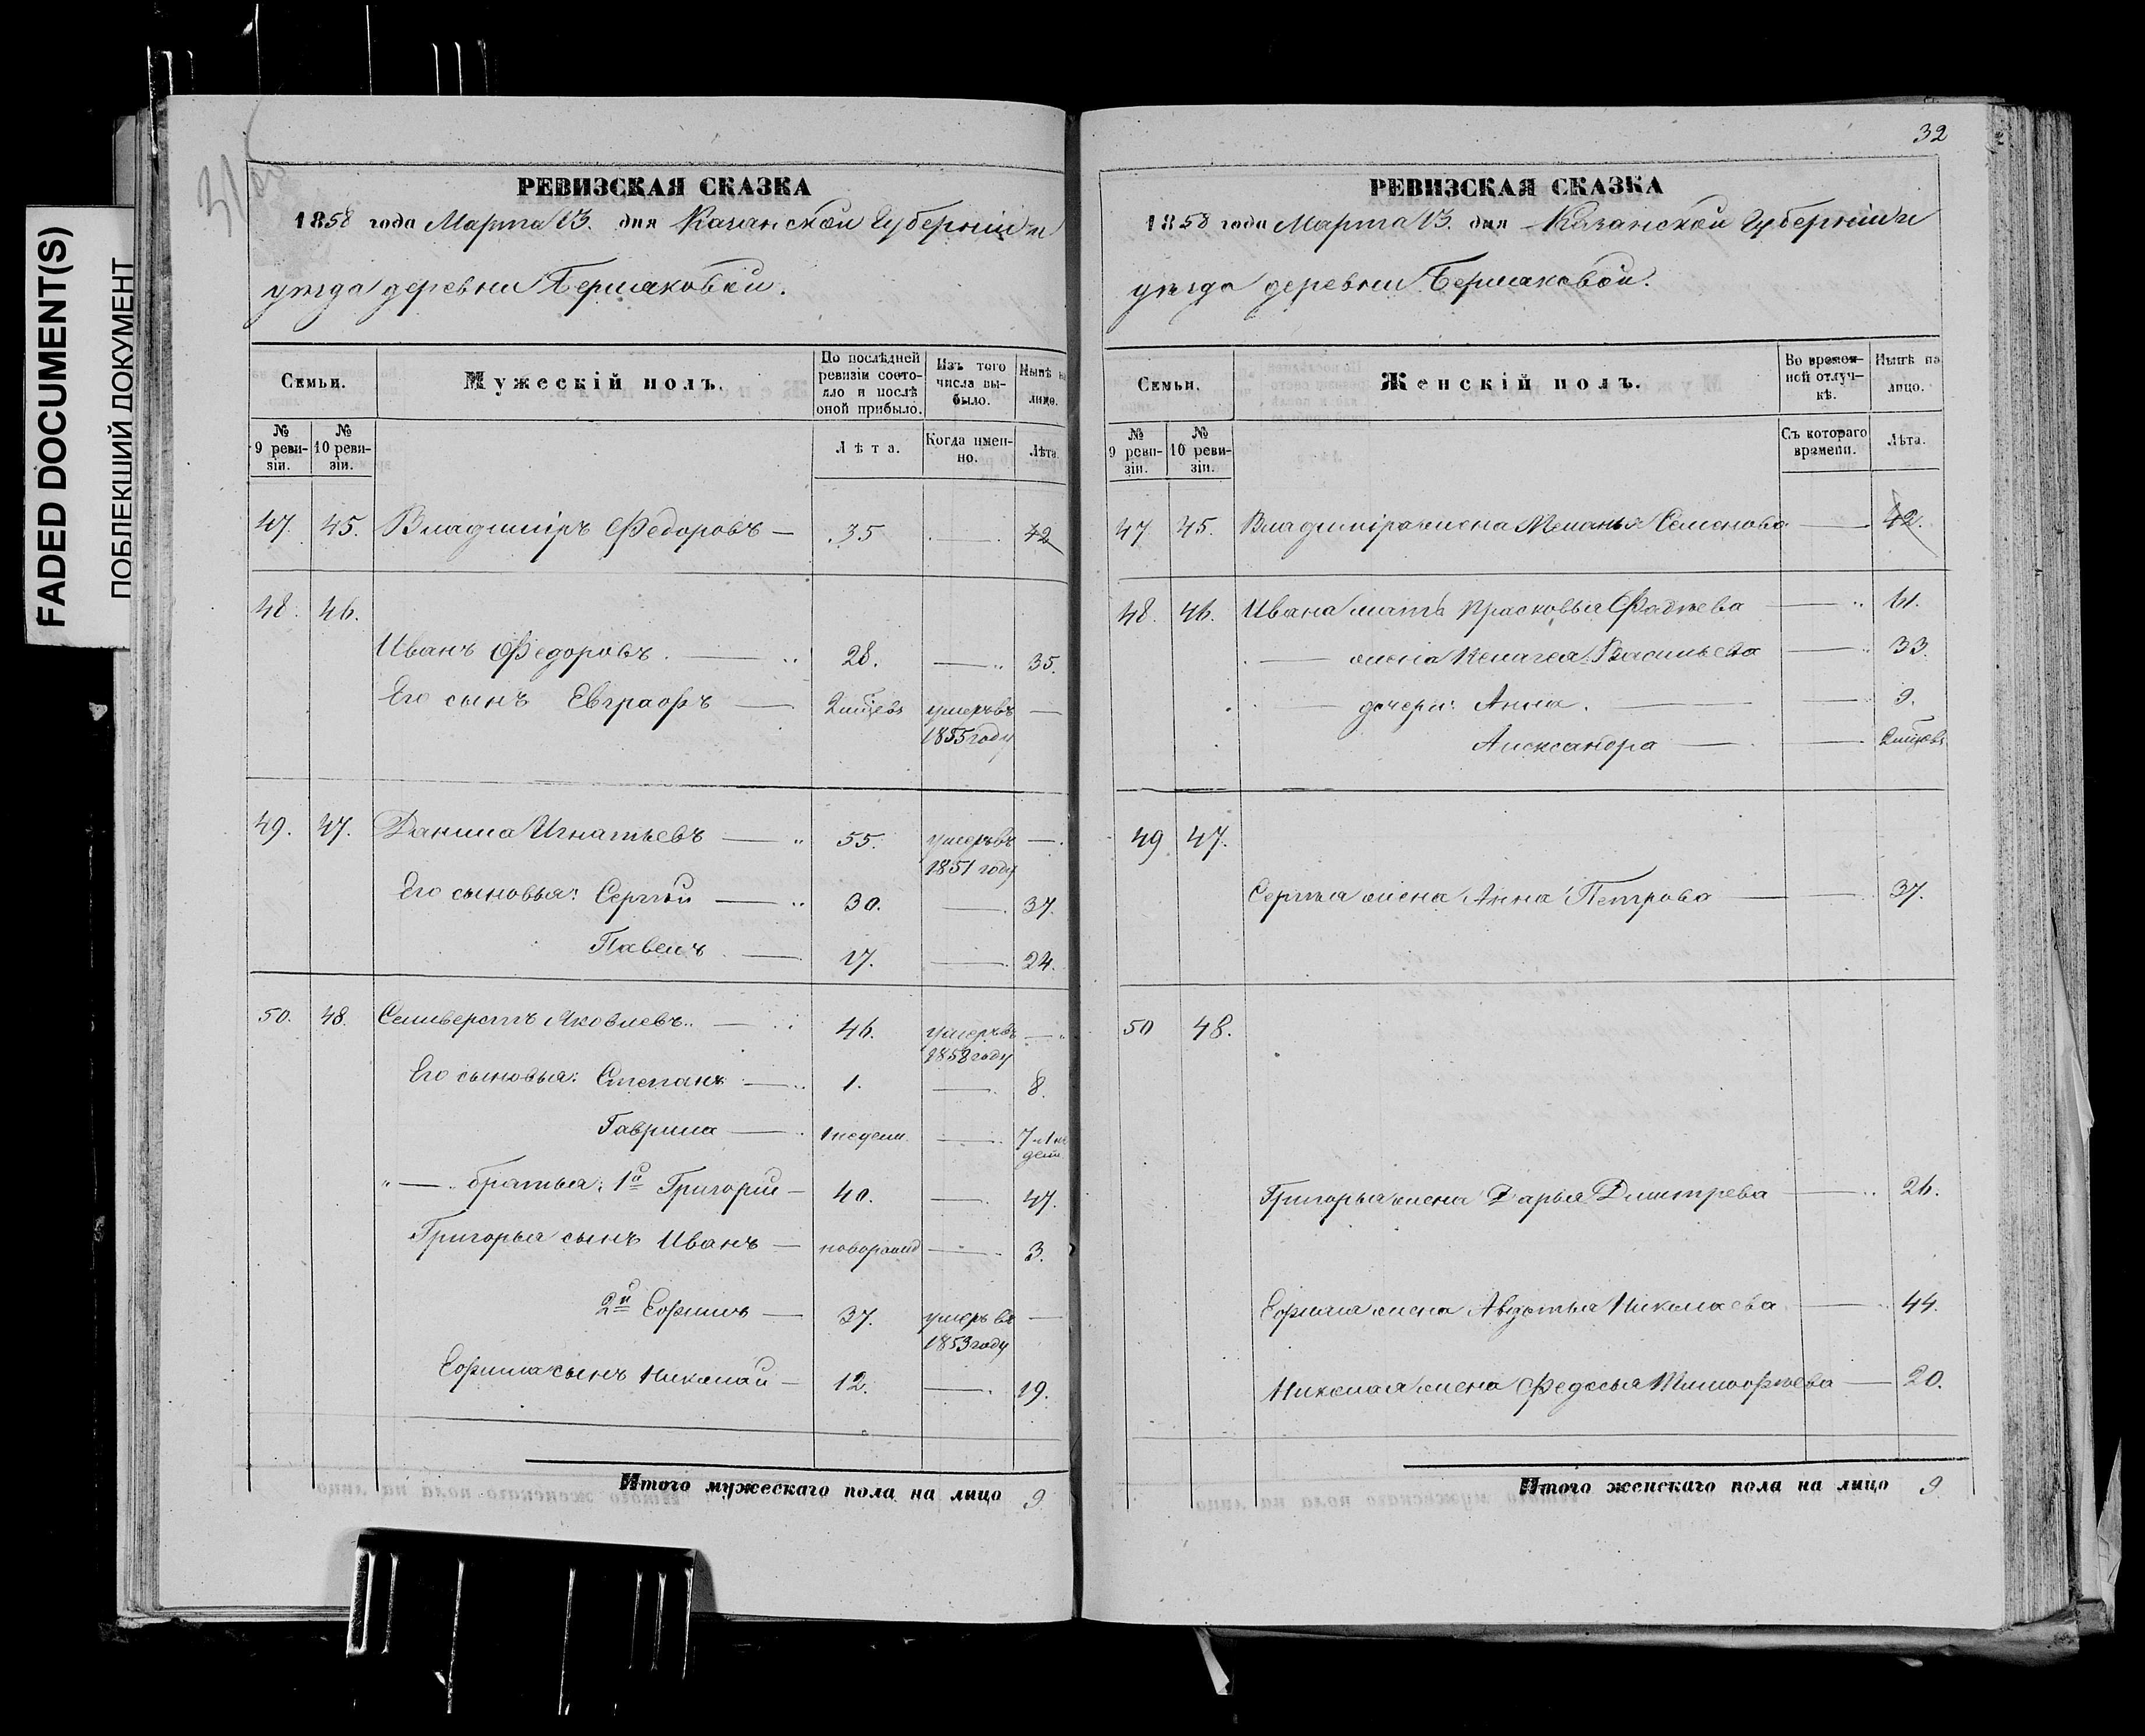 FADED DOCUMENT(S)
ПОБЛЕКШИЙ ДОКУМЕНТ
РЕВИЗСКАЯ СКАЗКА
1858 года Марта 13. дня Казанской Губерніи и
уѣзда деревни
Семьи.
Мужескій полъ.
По послѣдней ревизіи состо-
яло и послѣ оной прибыло.
Изъ того числа вы-
было.
Нынѣ на лицо.
№ 9 реви-
зіи.
№ 10 реви-
зіи.
Лѣта.
Когда имен-
но.
Лѣта.
47. 45. Владиміръ Федоровъ — 35 — 42
48. 46.
Иванъ Федоровъ. — 28. — 35.
Его сынъ Евграфъ — умеръ въ —
1855 году
49. 47. Данила Игнатьевъ — 55. умеръ въ —
1851 году
Его сыновья: Сергѣй — 30. — 37.
Павелъ — 17. — 24.
50. 48. Селиверстъ Яковлевъ. — 46. умеръ въ —
1858 году
Его сыновья: Степанъ — 1. — 8.
Гаврила — 1 недели. — 7 и 1 не
дел.
" — братья: 1й Григорій — 40. — 47.
Григорья сынъ Иванъ — новорожд — 3.
2й Ефимъ — 37. умеръ въ —
1853 году
Ефима сынъ Николай — 12. — 19.
Итого мужескаго пола на лицо 9
32
РЕВИЗСКАЯ СКАЗКА
1858 года Марта 13. дня Казанской Губерніи и
уѣзда деревни
Семьи.
Женскій полъ.
Во времен-
ной отлуч-
кѣ.
Нынѣ на лицо.
№ 9 реви-
зіи.
№ 10 реви-
зіи.
Съ котораго времени.
Лѣта.
47. 45. Владиміра жена Меланья Семенова — 42.
48. 46. Ивана мать Прасковья Фадѣева — 61.
— жена Пелагея Васильева — 33.
— дочери: Анна. — 9.
Александра —
49 47.
Сергѣя жена Анна Петрова — 37.
50 48.
Григорья жена Дарья Дмитрева — 26.
Ефима жена Авдотья Николаева — 44.
Николая жена Федосья Тимофѣева — 20.
Итого женскаго пола на лицо 9